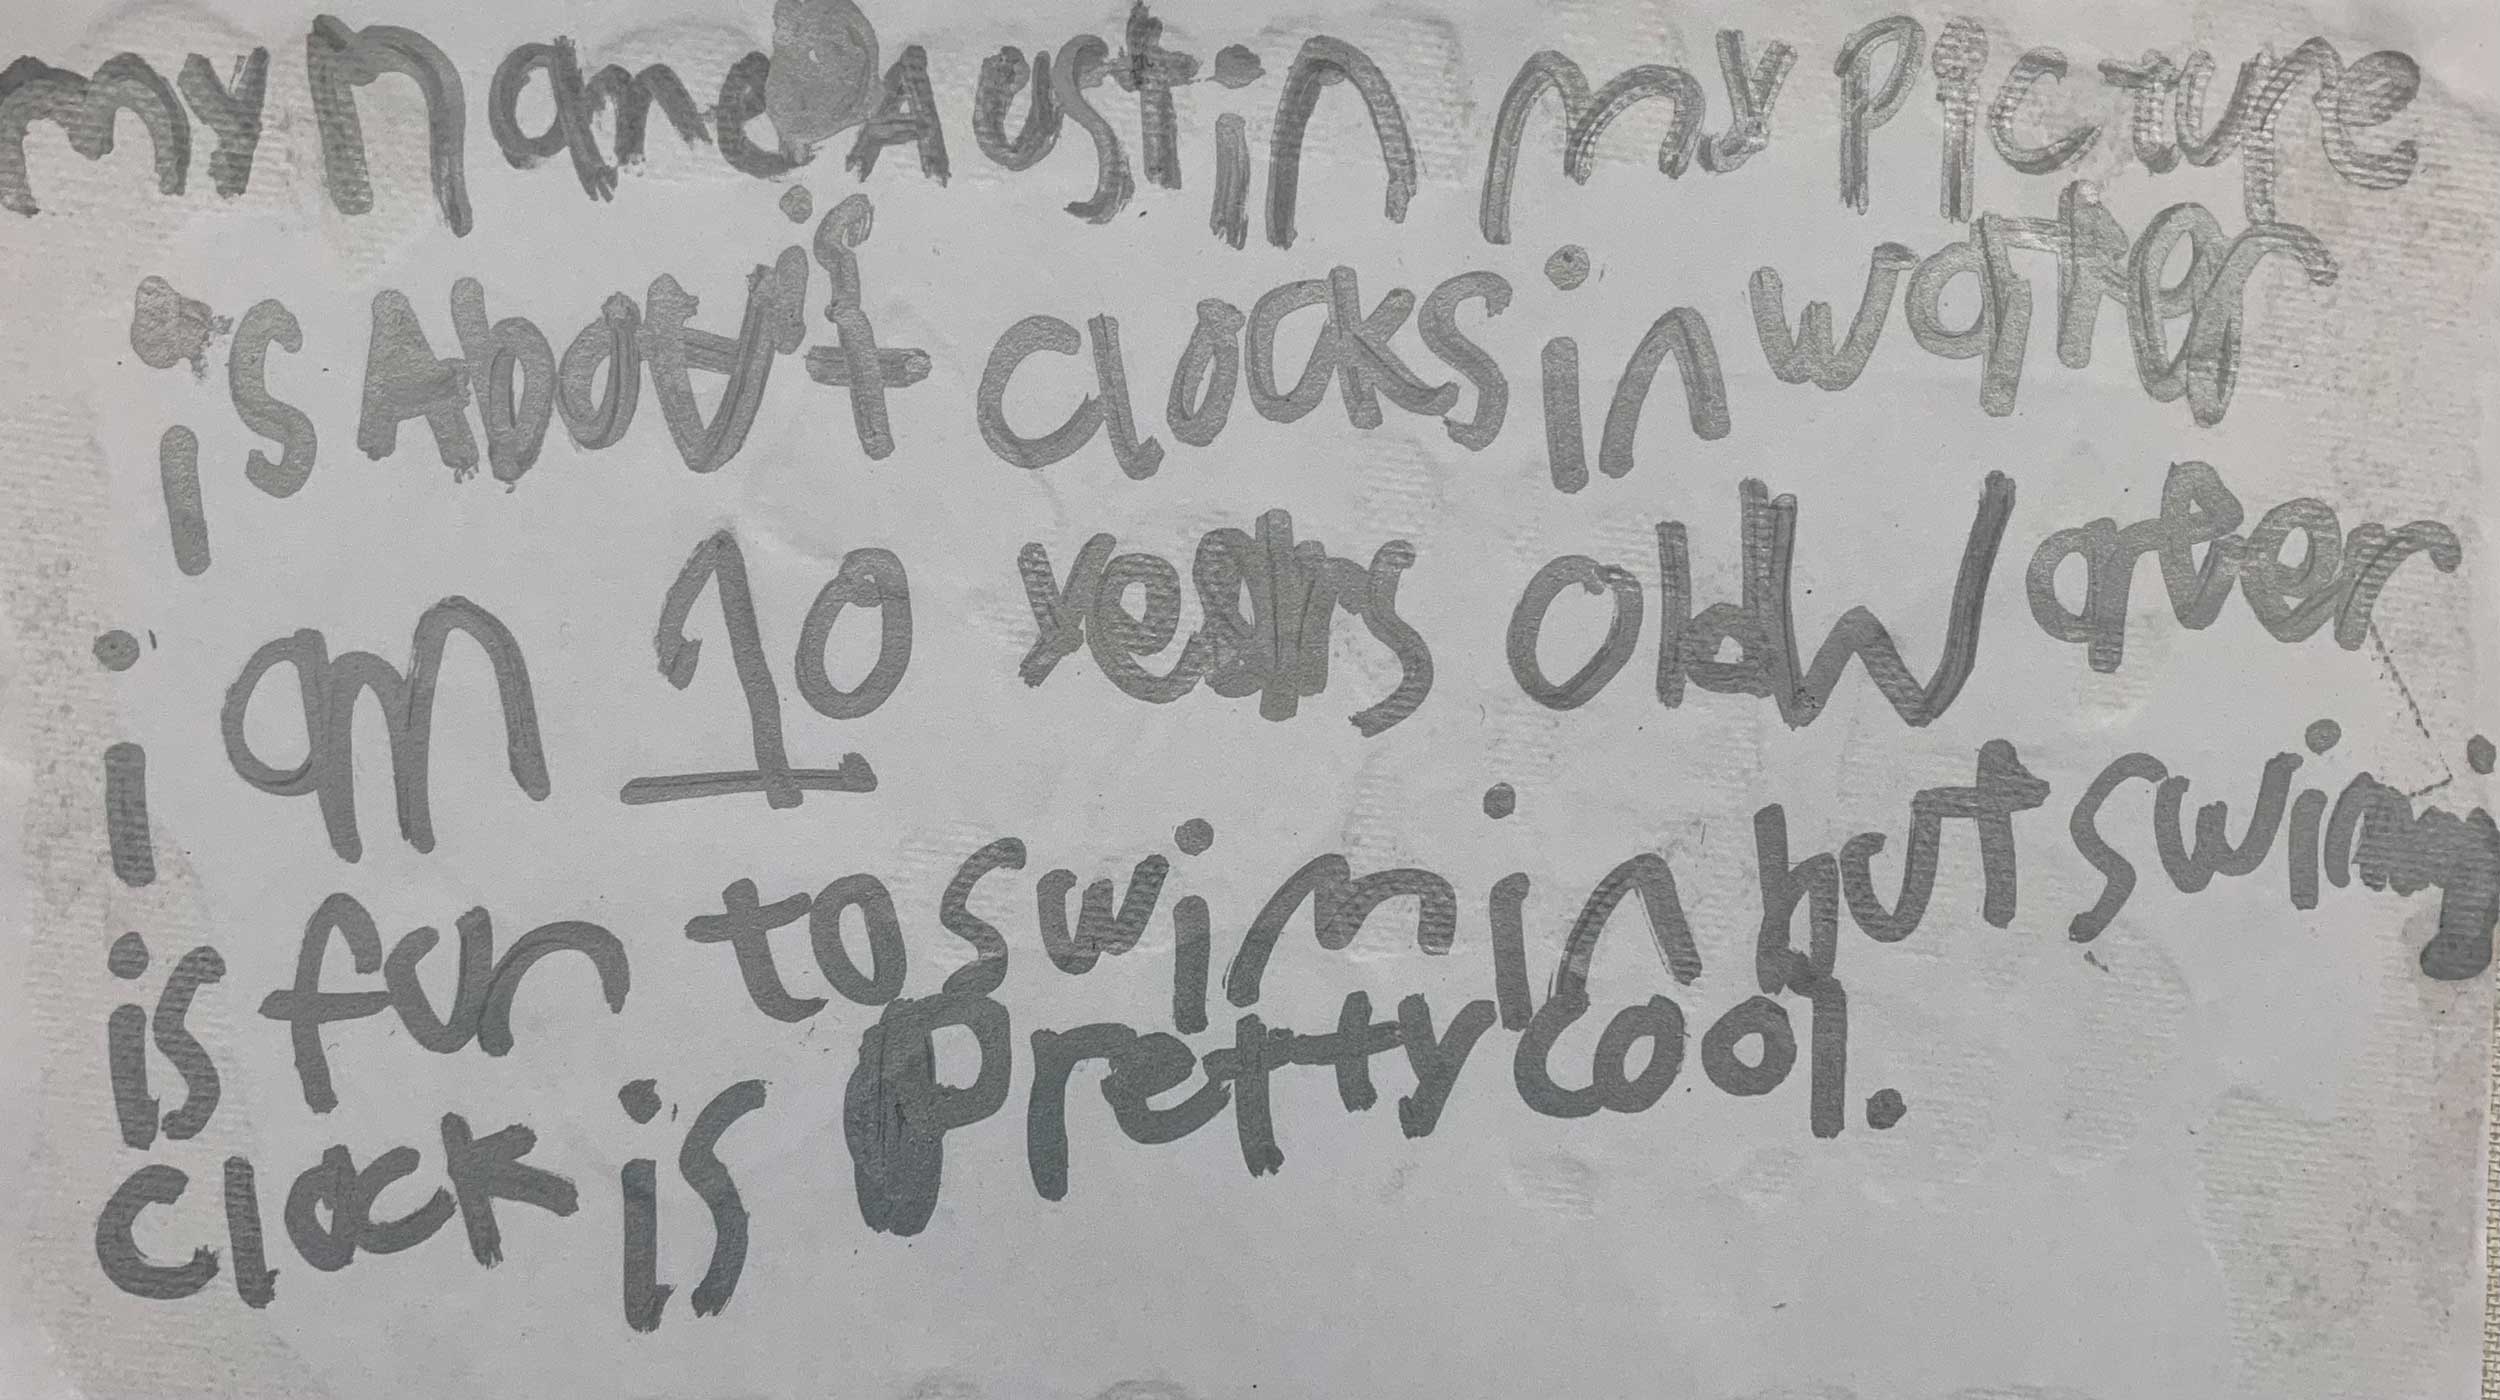 my name Austin my picture
is About clocks in water
i am 10 years old Water
is fun to swim in but swimmi
clock is pretty cool.